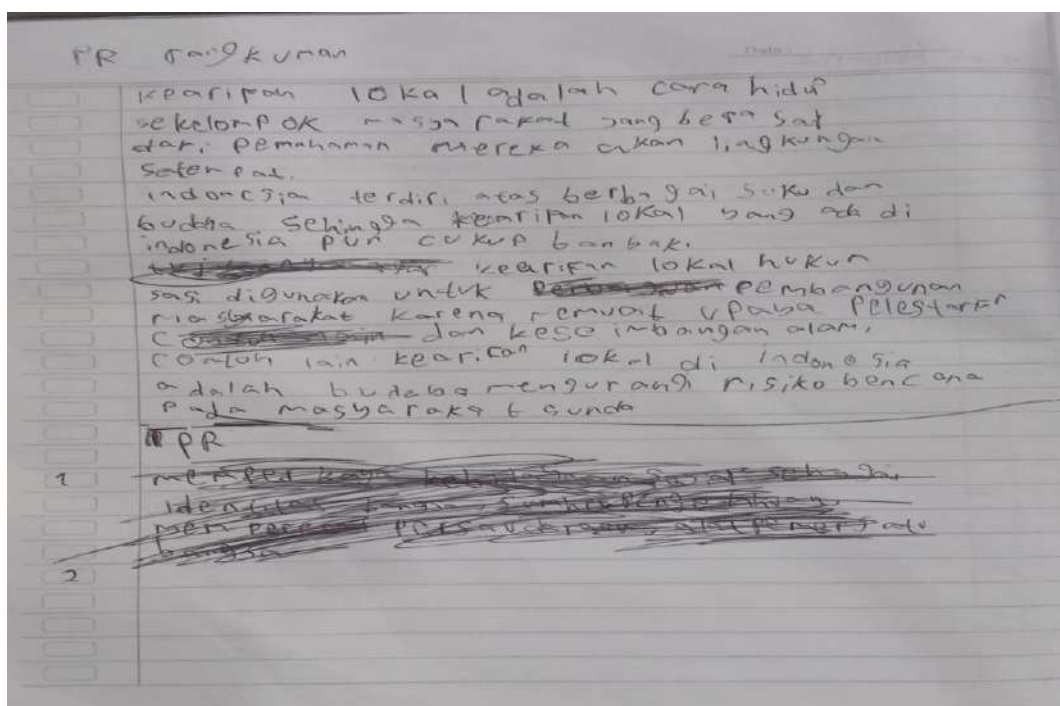 PR rangkuman
kearipan lokal adalah cara hidup
sekelompok masyarakat yang berasal
dari pemahaman mereka akan lingkungan
setempat.
indonesia terdiri atas berbagai suku dan
budaya sehingga kearifan lokal yang ada di
indonesia pun cukup banyak.
kearifan lokal hukum
sasi digunakan untuk pembangunan
masyarakat karena memuat upaya
dan keseimbangan alam,
contoh lain kearifan lokal di indonesia
adalah mengurangi risiko bencana
pada masyarakat sunda
PR
1
2